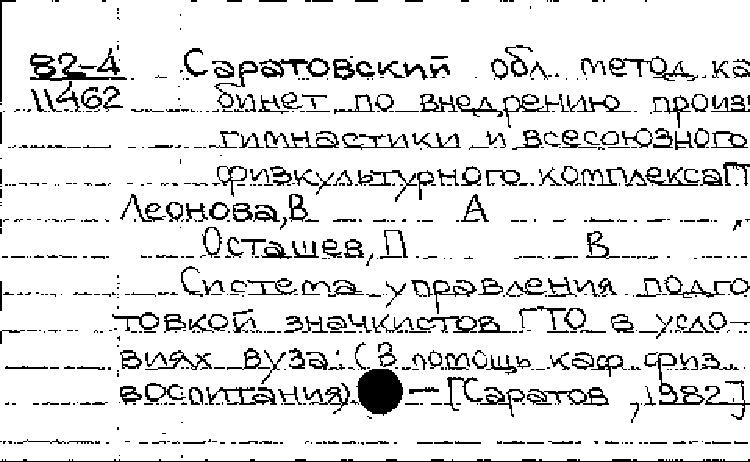 82-4 Саратовский обл. метод. ка
11462 бинет по внедрению произ
гимнастики и всесоюзного
физкультурного комплекса ГТ
Леонова, В А ,
Осташев, П В
Система управления подго
товкой значкистов ГТО в усло-
виях вуза: (В помощь каф. физ.
воспитания) — [Саратов, 1982]